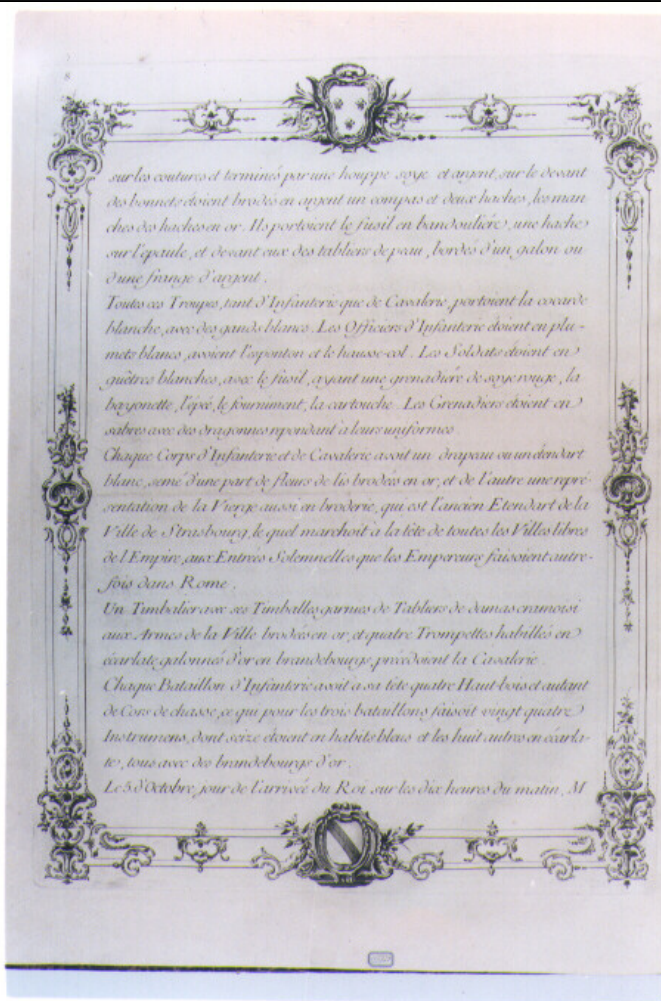 sur les coutures et terminés par une houppe soye et argent, sur le devant
des bonnets étoient brodés en argent un compas et deux haches, les man
ches des haches en or. Ils portoient le fusil en bandouliére, une hache
sur l'epaule, et devant eux des tabliers de peau, bordés d'un galon ou
d'une frange d'argent.
Toutes ces Troupes, tant d'Infanterie que de Cavalerie, portoient la cocarde
blanche, avec des gands blancs. Les Officiers d'Infanterie étoient en plu-
mets blancs, avoient l'esponton et le hausse-col. Les Soldats étoient en
guêtres blanches, avec le fusil, ayant une grenadiére de soye rouge, la
bayonette, l'épeé, le fourniment, la cartouche. Les Grenadiers étoient en
sabres avec des dragonnes repondant à leurs uniformes.
Chaque Corps d'Infanterie et de Cavalerie avoit un drapeau ou un étendart
blanc, semé d'une part de fleurs de lis brodées en or, et de l'autre une repré-
sentation de la Vierge aussi en broderie, qui est l'ancien Etendart de la
Ville de Strasbourg, le quel marchoit à la tête de toutes les Villes libres
de l'Empire, aux Entrées Solemnelles que les Empereurs faisoient autre-
fois dans Rome.
Un Timbalier avec ses Timballes garnies de Tabliers de damas cramoisi
aux Armes de la Ville brodées en or, et quatre Trompettes habillés en
écarlate galonnés d'or en brandebourgs, précédoient la Cavalerie.
Chaque Bataillon d'Infanterie avoit a sa tête quatre Haut-bois et autant
de Cors de chasse, ce qui pour les trois bataillons faisoit vingt quatre
Instrumens, dont seize étoient en habits bleus et les huit autres en écarla-
te, tous avec des brandebourgs d'or.
Le 5. d'Octobre, jour de l'arrivée du Roi, sur les dix heures du matin, M